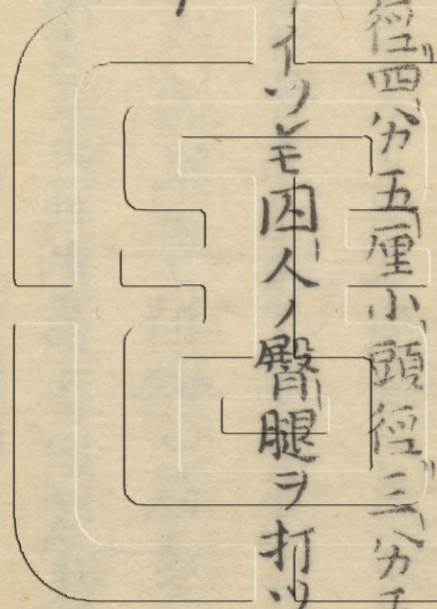 徑四分五厘小頭徑三分
イツレモ囚人ノ臀腿ヲ打ツ